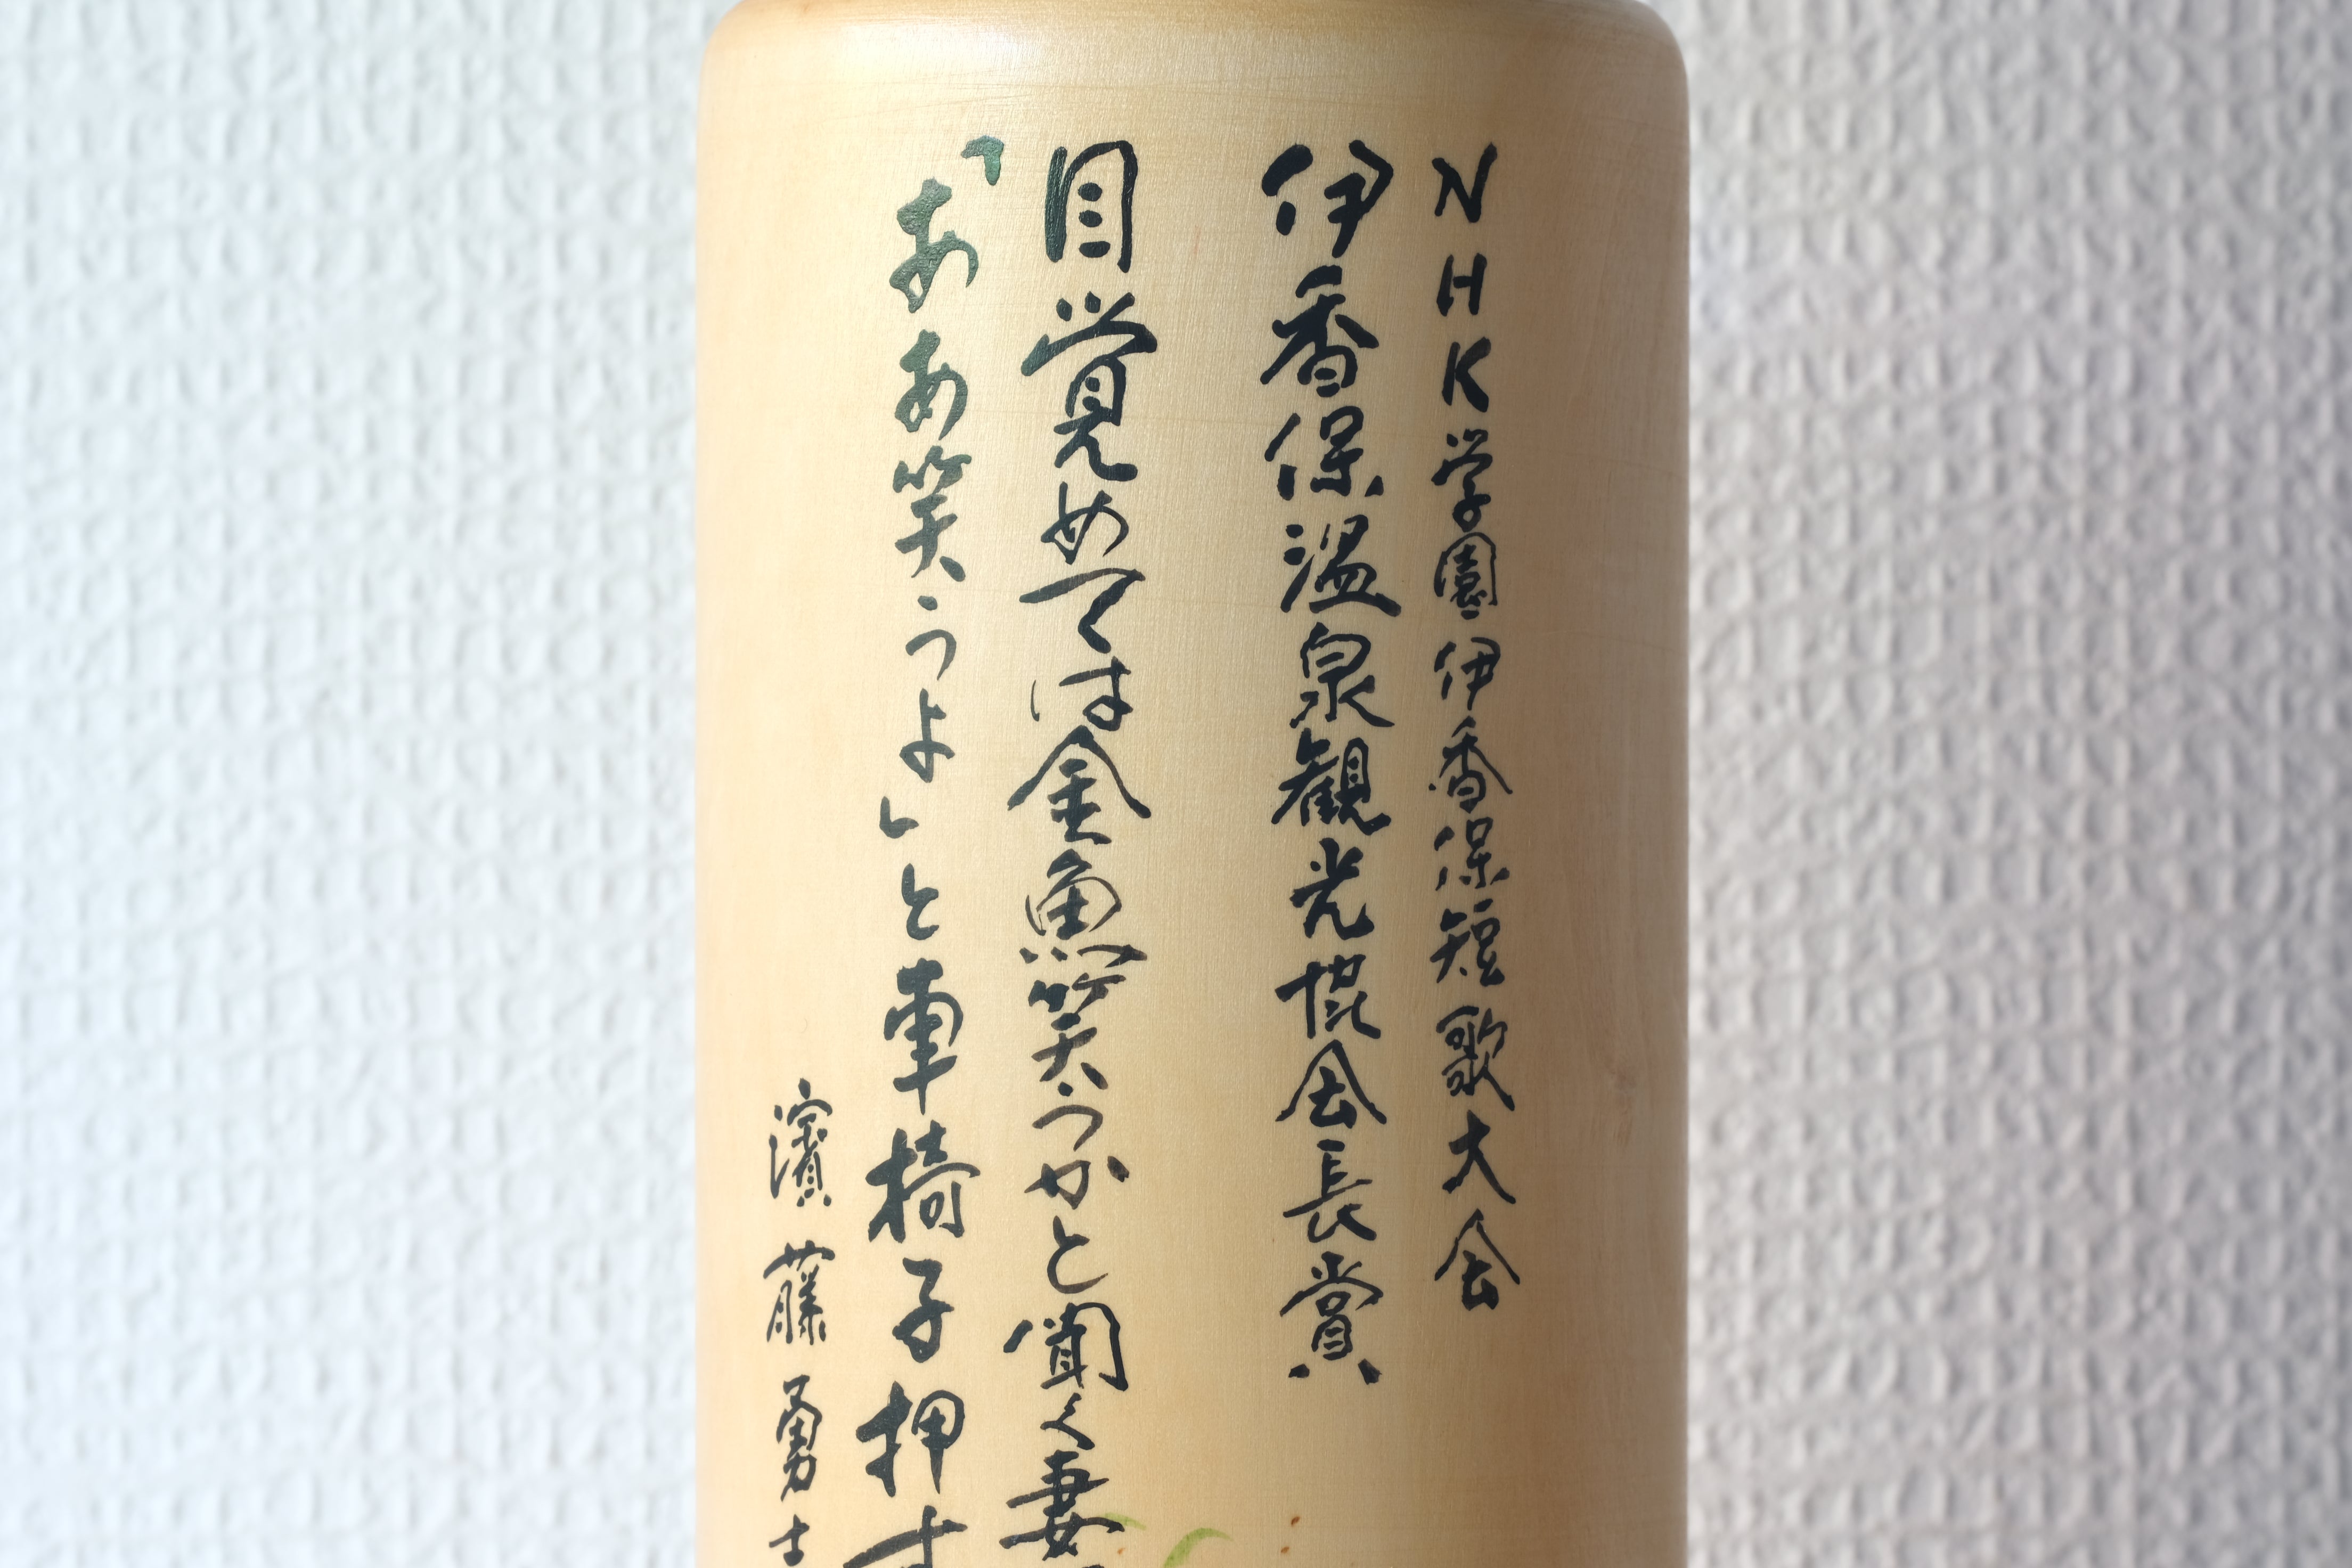 NHK学園伊香保短歌大会
伊香保温泉観光協会長賞
目覚めては金魚笑うかと聞く妻
「ああ笑うよ」と車椅子押す
濱藤勇士